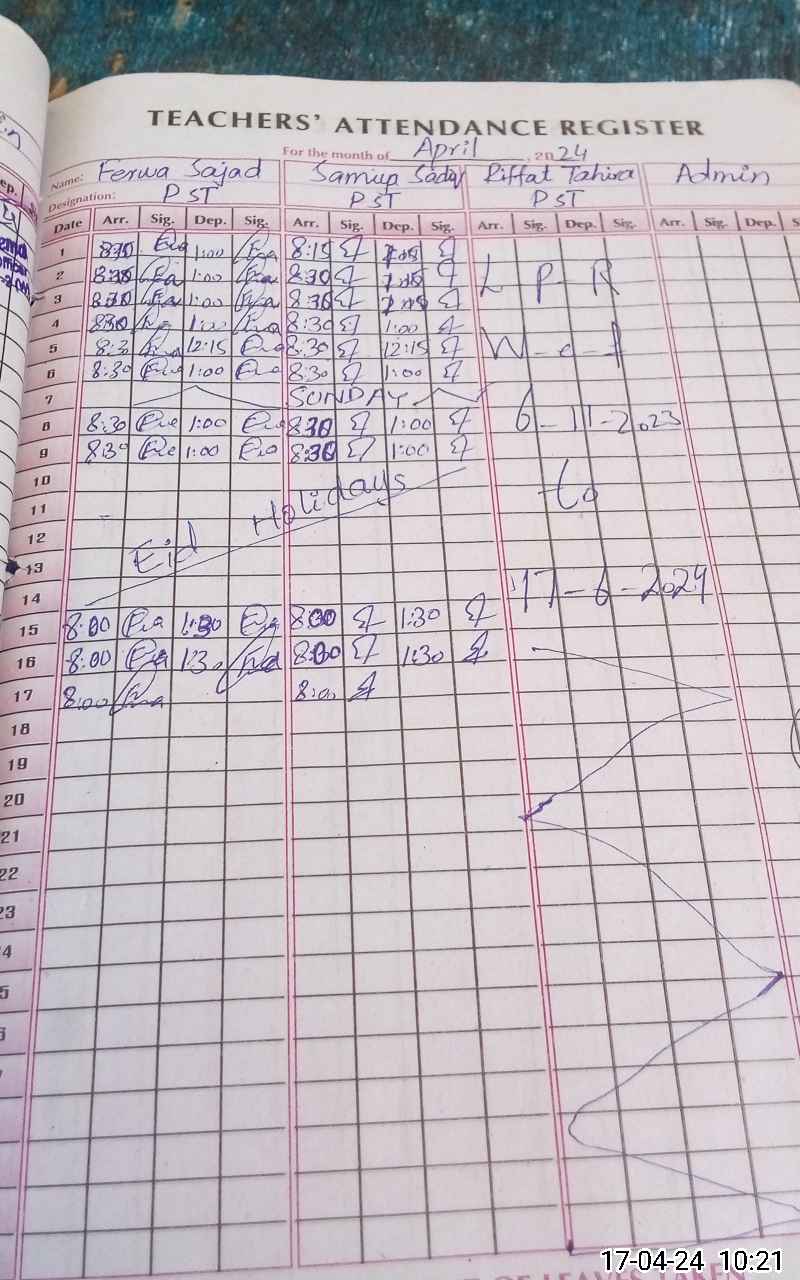 TEACHERS' ATTENDANCE REGISTER
For the month of April, 2024
Name: Ferwa Sajad Riffat Tahira Admin
Designation: PST PST PST
Date Arr. Sig. Dep. Sig. Arr. Sig. Dep. Sig. Arr. Sig. Dep. Sig. Arr. Sig. Dep.
1 1:00 8:15
2 1:00 8:30 L P R
3 1:00 8:30
4 830 1:00 8:30 1:00
5 8:30 12:15 8:30 12:15 W-e-f
6 8:30 1:00 8:30 1:00
7 SUNDAY
8 8:30 1:00 830 1:00 6-11-2023
9 830 1:00 8:30 1:00
10 Holidays to
11
12 Eid
13
14 17-6-2024
15 8:00 1:30 8:00 1:30
16 8:00 1:30 8:00 1:30
17 8:00 8:00
18
19
20
21
22
23
4
5
17-04-24 10:21
OF LEAVES TAKEN